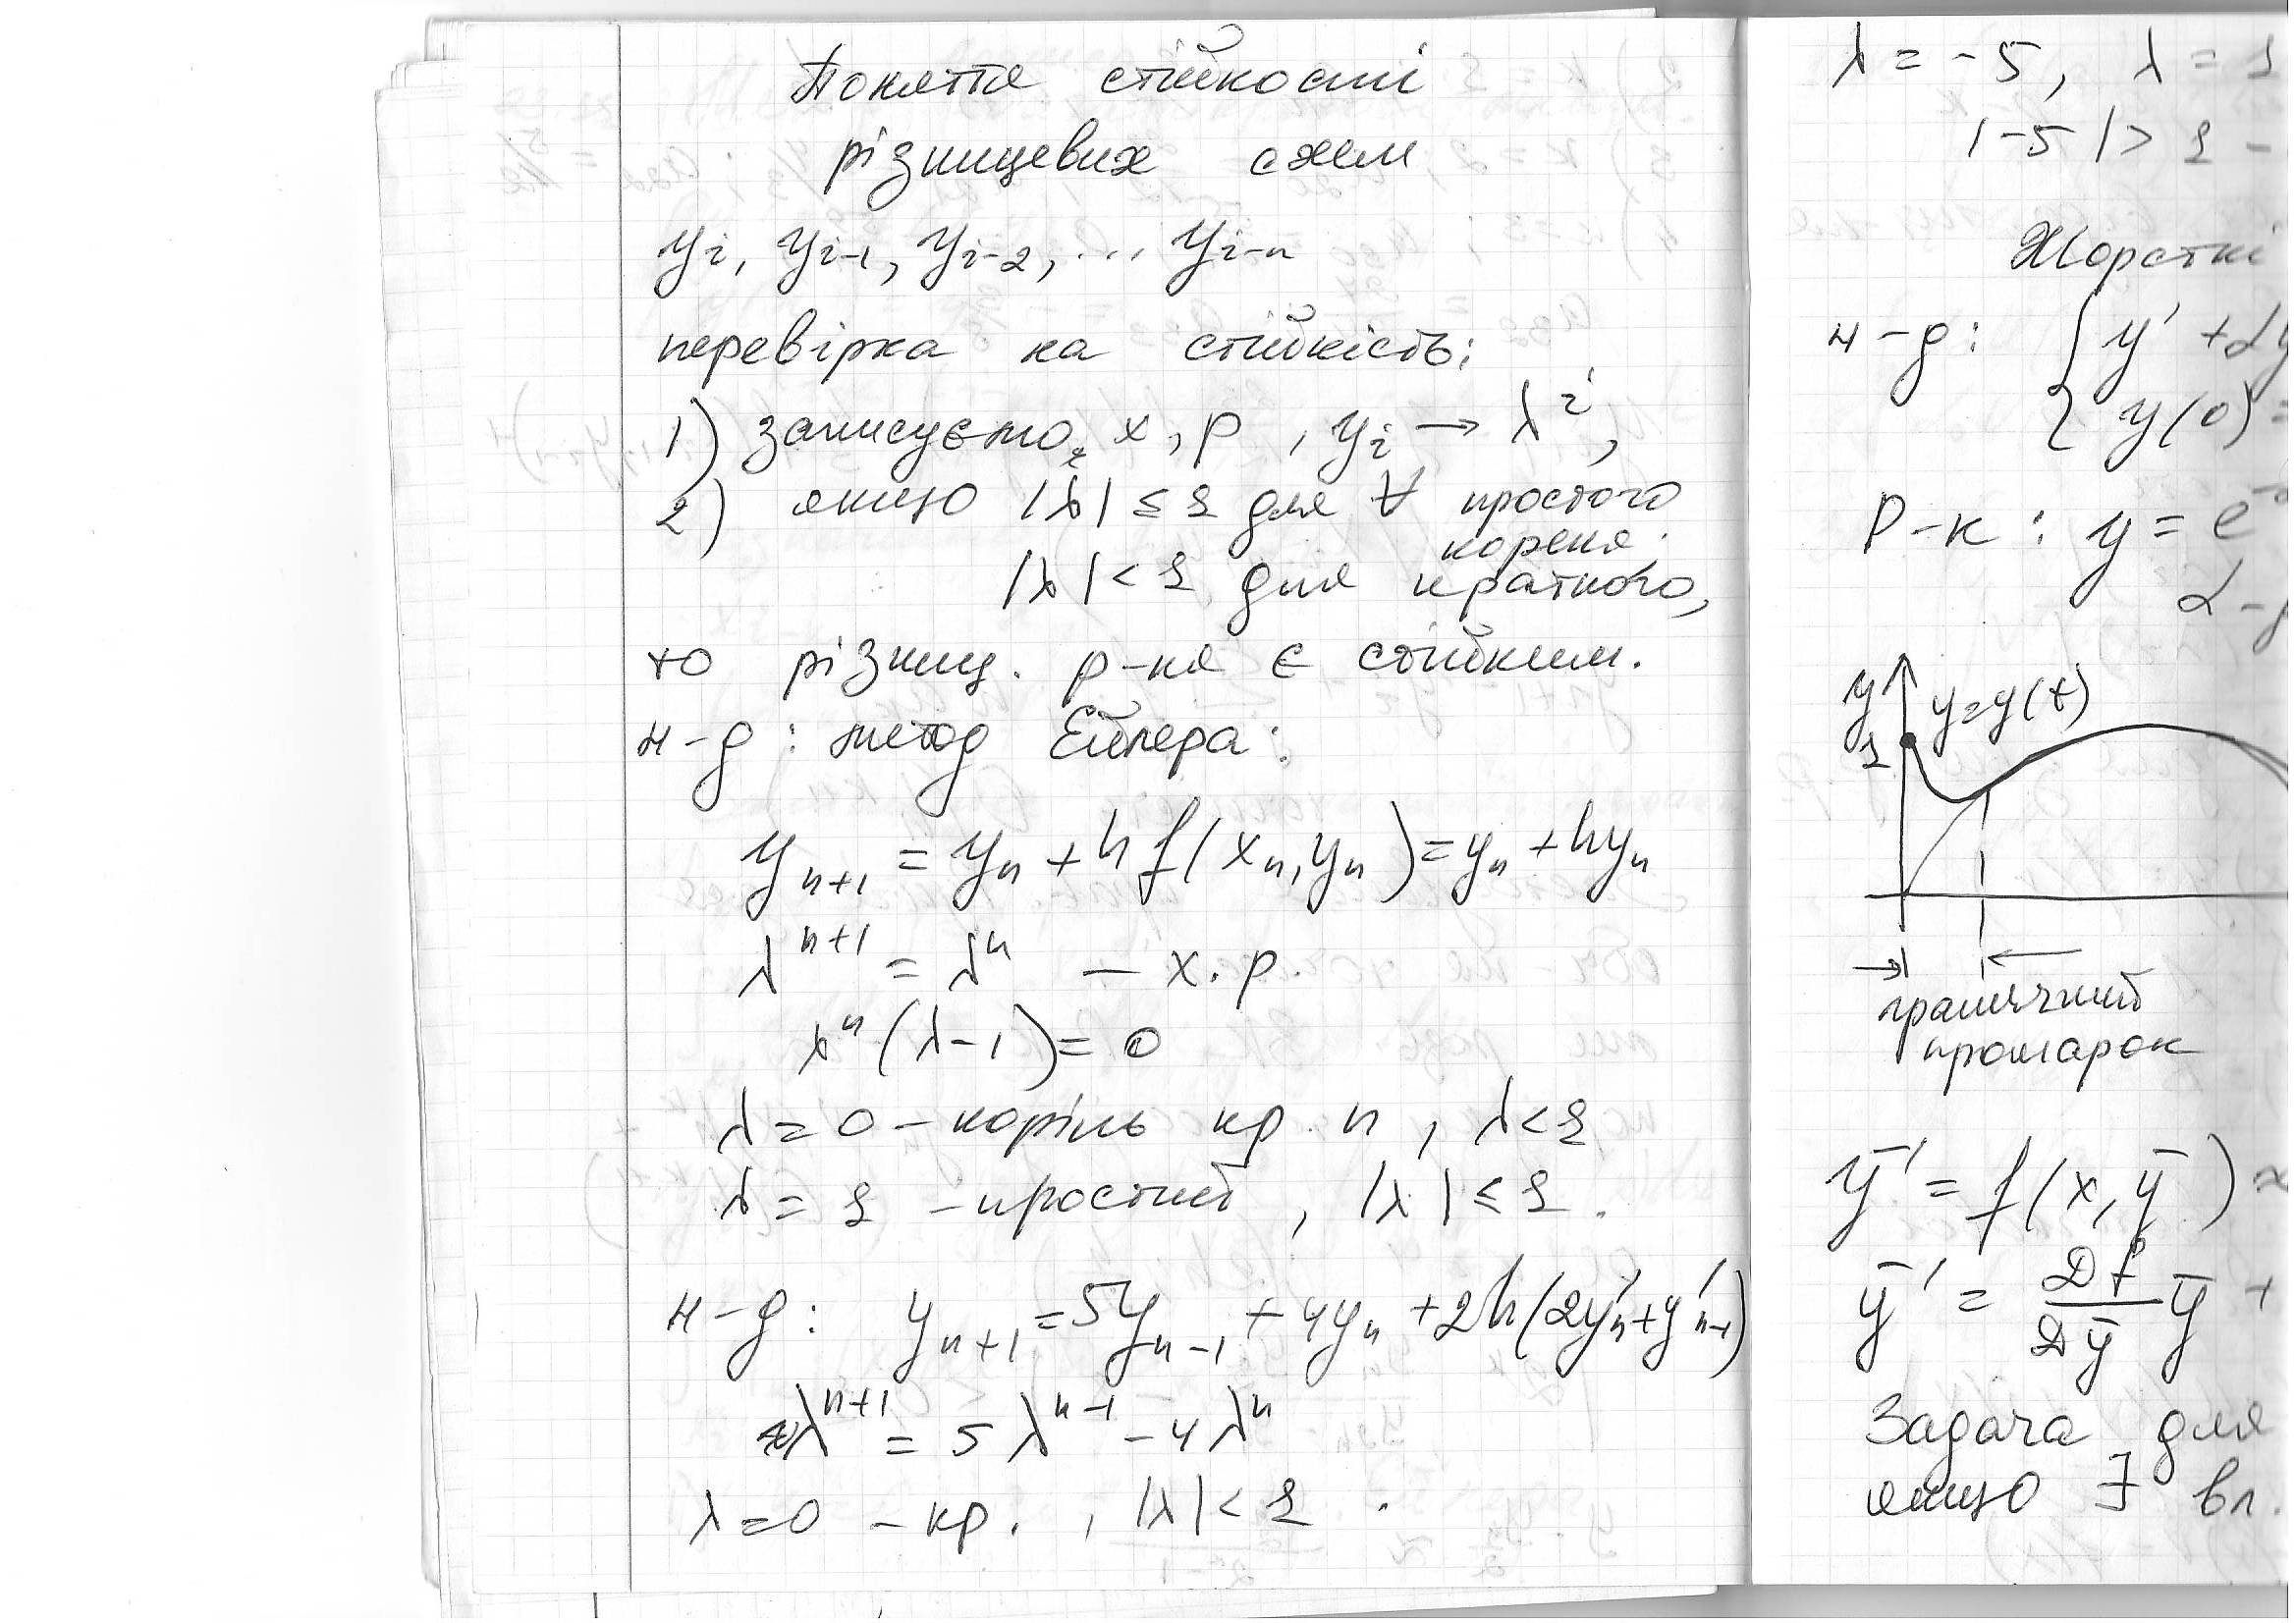 Поняття стійкості
різницевих схем
y_i, y_{i-1}, y_{i-2}, ... y_{i-n}
перевірка на стійкість:
1) записуємо x, p, y_i → λ^i,
2) якщо |λ| ≤ 1 для ∀ простого
кореня.
|λ| < 1 для кратного,
то різниц. р-ня є стійким.
н-д: метод Ейлера:
y_{n+1} = y_n + h f(x_n, y_n) = y_n + hy_n
λ^{n+1} = λ^n – х.р.
λ^n (λ-1) = 0
λ = 0 – корінь кр. n, λ < 1
λ = 1 – простий, |λ| ≤ 1.
н-д: y_{n+1} = 5y_{n-1} + 4y_n + 2h(2y'_n + y'_{n-1})
λ^{n+1} = 5λ^{n-1} - 4λ^n
λ = 0 – кр., |λ| < 1.
λ = -5, λ = 1
|-5| > 1 -
Жорсткі
н-д: { y' + αy
y(0) =
Р-к: y = e^-
α -
y
1
y = y(x)
граничний
прошарок
ȳ' = f(x, ȳ) ≈
ȳ' = Df/Dȳ ȳ +
Задача для
якщо ∃ вл.